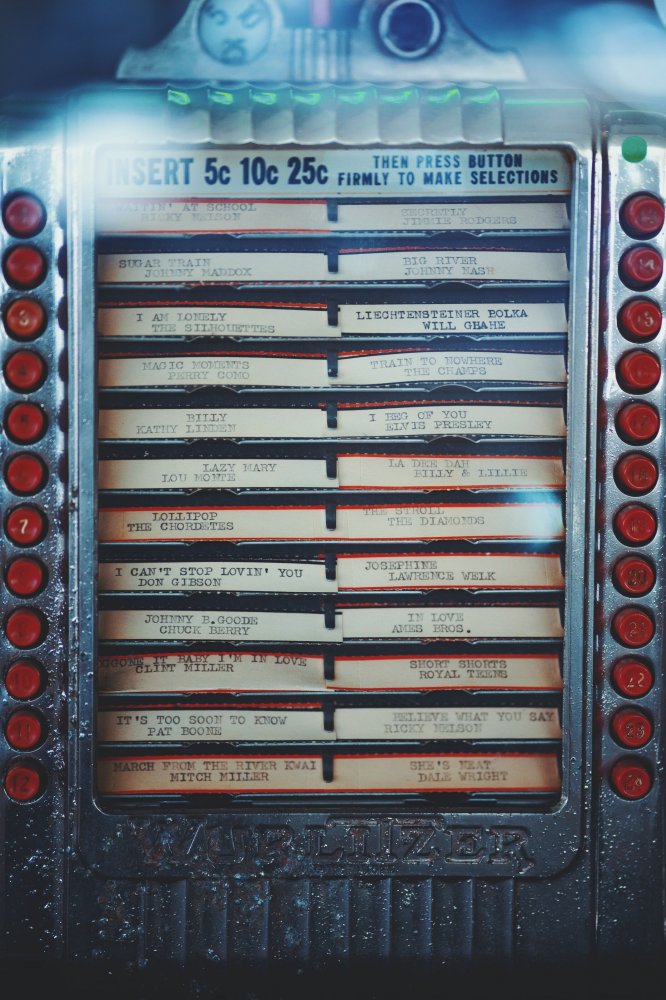 INSERT 5c 10c 25c
THEN PRESS BUTTON
FIRMLY TO MAKE SELECTIONS
WAITIN' AT SCHOOL
RICKY NELSON
SECRETLY
JIMMIE RODGERS
SUGAR TRAIN
JOHNNY MADDOX
BIG RIVER
JOHNNY NASH
I AM LONELY
THE SILHOUETTES
LIECHTENSTEINER POLKA
WILL GHAHE
MAGIC MOMENTS
PERRY COMO
TRAIN TO NOWHERE
THE CHAMPS
BILLY
KATHY LINDEN
I BEG OF YOU
ELVIS PRESLEY
LAZY MARY
LOU MONTE
LA DEE DAH
BILLY & LILLIE
LOLLIPOP
THE CHORDETES
THE STROLL
THE DIAMONDS
I CAN'T STOP LOVIN' YOU
DON GIBSON
JOSEPHINE
LAWRENCE WELK
JOHNNY B.GOODE
CHUCK BERRY
IN LOVE
AMES BROS.
GONE IT BABY I'M IN LOVE
CLINT MILLER
SHORT SHORTS
ROYAL TEENS
IT'S TOO SOON TO KNOW
PAT BOONE
BELIEVE WHAT YOU SAY
RICKY NELSON
MARCH FROM THE RIVER KWAI
MITCH MILLER
SHE'S NEAT
DALE WRIGHT
3
7
10
11
12
15
20
21
22
23
WURLITZER